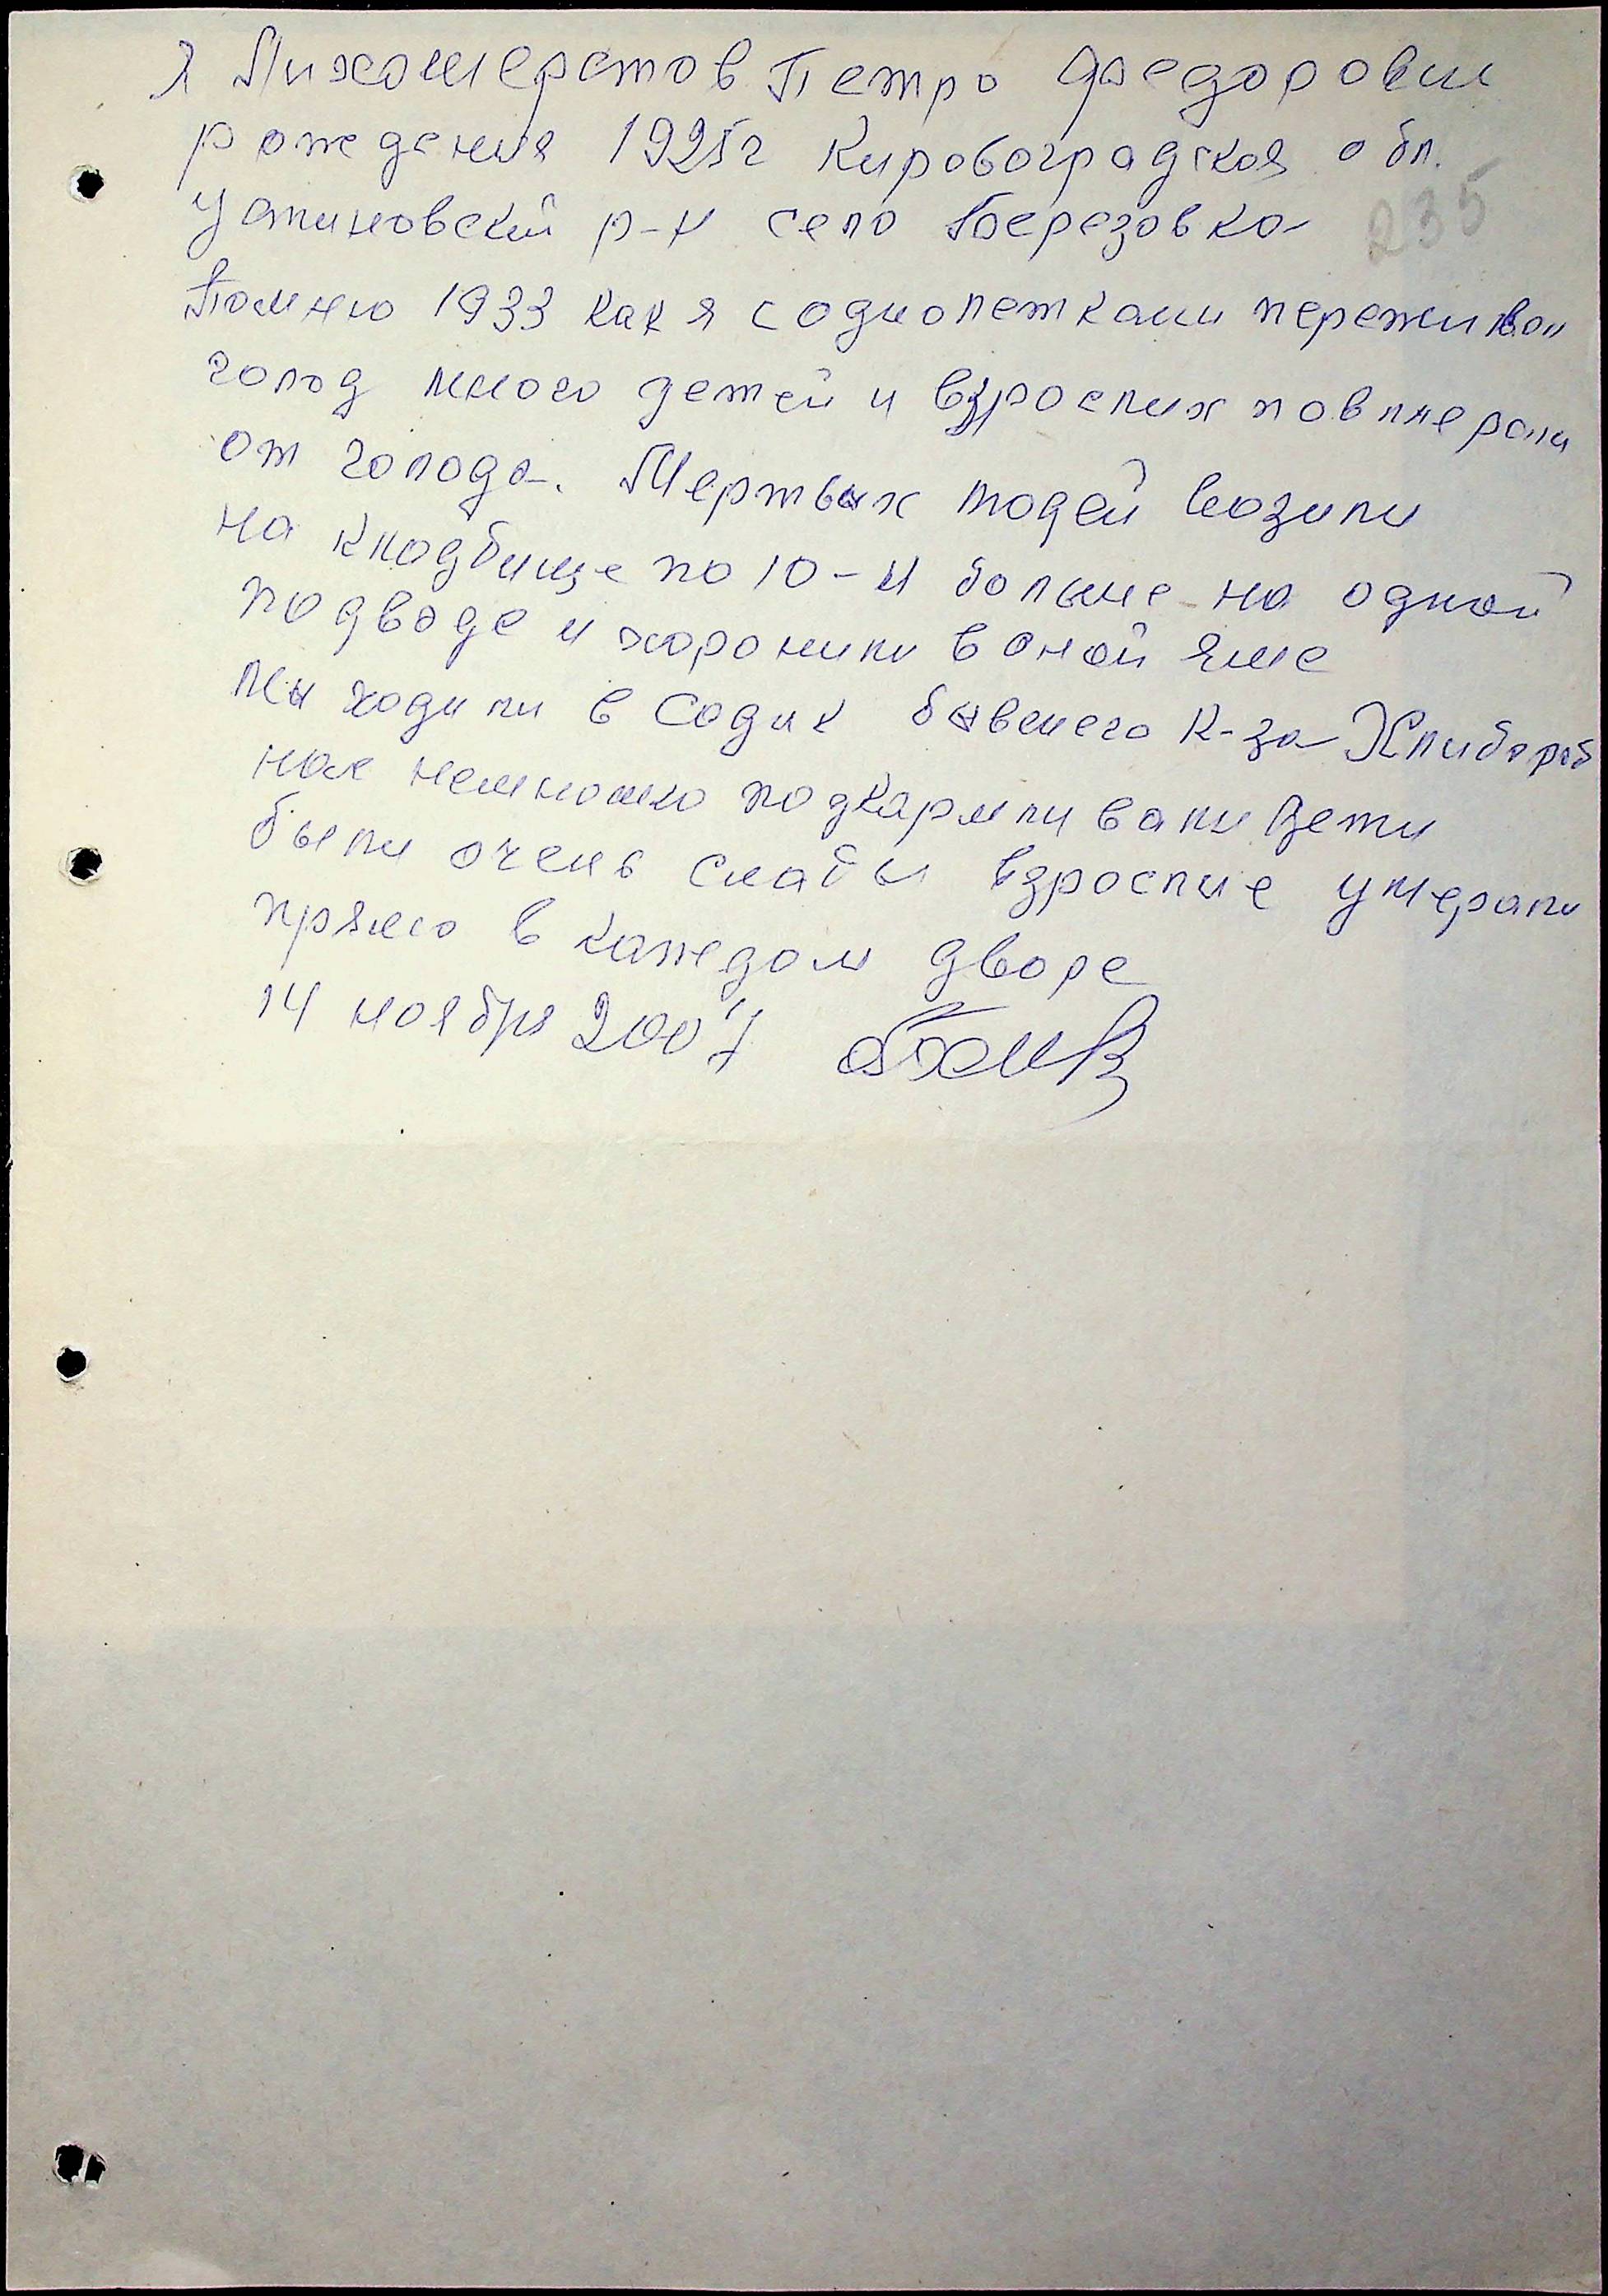 Я Лихошерстов Петро Федорович
рождения 1925г Кировоградская обл.
Устиновский р-н село Березовка
235
Помню 1933 как я с однолетками переживал
голод много детей и взрослих повмерали
от голода. Мертвых людей возили
на кладбище по 10-и больше на одной
подводе и хоронили в оной яме
Мы ходили в Садик бывшего К-за Хлибороб
нас немножко подкармливали Дети
были очень слабы взрослие умерали
прямо в каждом дворе
14 ноября 2007